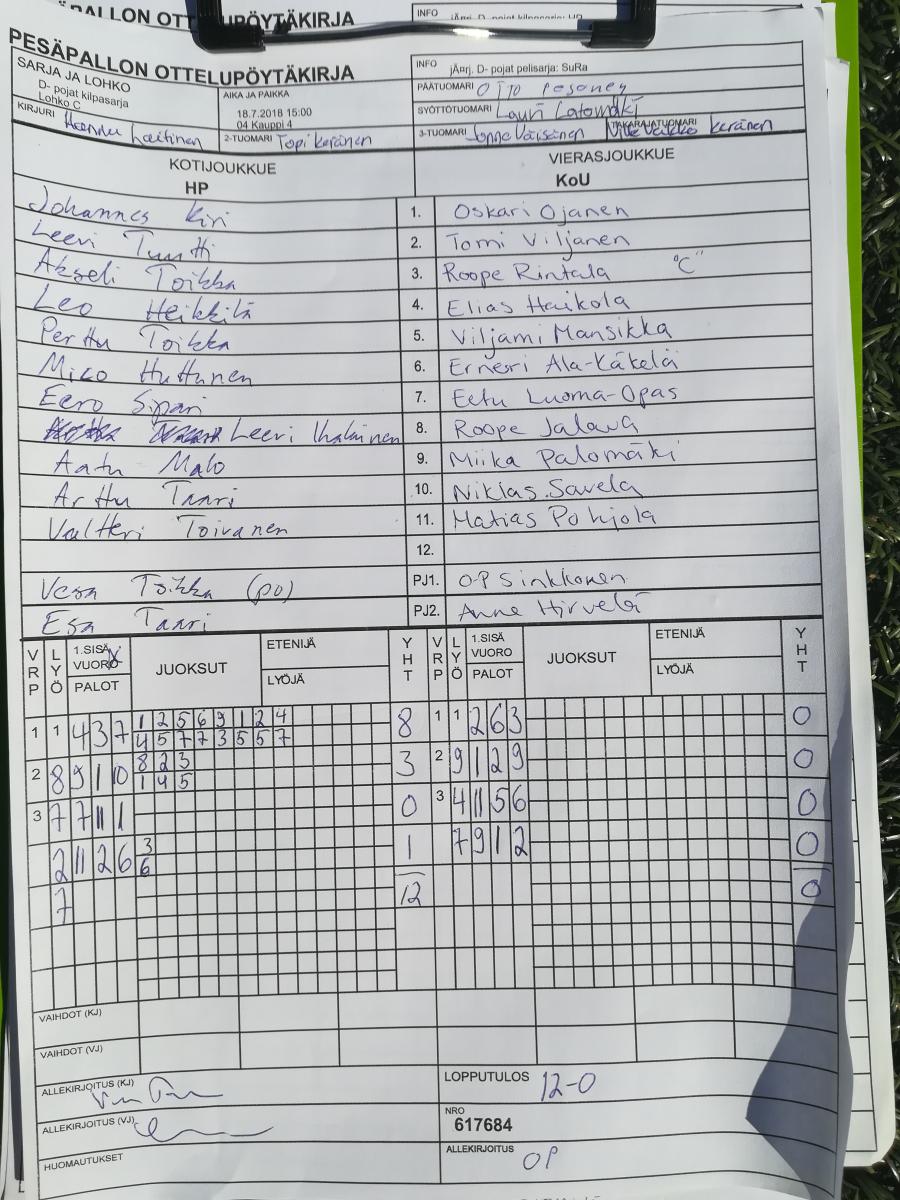 PALLON OTTELUPÖYTÄKIRJA
INFO
PESÄPALLON OTTELUPÖYTÄKIRJA
INFO jÄrrj. D- pojat pelisarja: SuRa
SARJA JA LOHKO
D- pojat kilpasarja
Lohko C
AIKA JA PAIKKA
18.7.2018 15:00
04 Kauppi 4
PÄÄTUOMARI Otto Pesonen
SYÖTTÖTUOMARI Lauri Latomäki
KIRJURI Hannu Laitinen
2-TUOMARI Topi Keränen
3-TUOMARI Jonne Väisänen
TAKARAJATUOMARI Keränen
KOTIJOUKKUE VIERASJOUKKUE
HP KoU
Johannes Kiri 1. Oskari Ojanen
Leevi Tuutti 2. Tomi Viljanen
Akseli Toikka 3. Roope Rintala "C"
Leo Heikkilä 4. Elias Haikola
Perttu Toikka 5. Viljami Mansikka
Mico Huttunen 6. Ernesri Ala-Käkelä
Eero Sipari 7. Eetu Luoma-Opas
Leevi Ihalainen 8. Roope Jalava
Aatu Malo 9. Miika Palomäki
Arttu Taari 10. Niklas Savela
Valtteri Toivanen 11. Matias Pohjola
12.
Vesa Toikka (po) PJ1. O-P Sinkkonen
Esa Taari PJ2. Anne Hirvelä
VRP LYÖ 1.SISÄ VUORO X PALOT JUOKSUT ETENIJÄ LYÖJÄ YHT VRP LYÖ 1.SISÄ VUORO PALOT JUOKSUT ETENIJÄ LYÖJÄ YHT
1 1 4 3 7 1 2 5 6 9 1 2 4 8 1 1 2 6 3 0
4 5 7 7 3 5 5 7
2 8 9 1 10 8 2 3 3 2 9 1 2 9 0
1 4 5
3 7 7 11 1 0 3 4 11 5 6 0
2 11 2 6 3 1 7 9 1 2 0
6
7 12 0
VAIHDOT (KJ)
VAIHDOT (VJ)
ALLEKIRJOITUS (KJ)
LOPPUTULOS 12-0
ALLEKIRJOITUS (VJ)
NRO
617684
HUOMAUTUKSET
ALLEKIRJOITUS OP